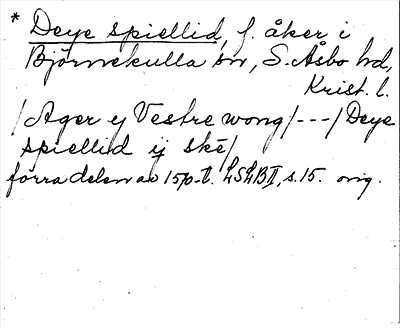 * Deye spiellid, f. åker i
Björnekulla sn, S. Åsbo hd,
Krist. l.
/Ager ij Vestre wong/---/Deye
spiellid ij ske/
förra delen av 1500-t. LSLBII, s. 15. orig.